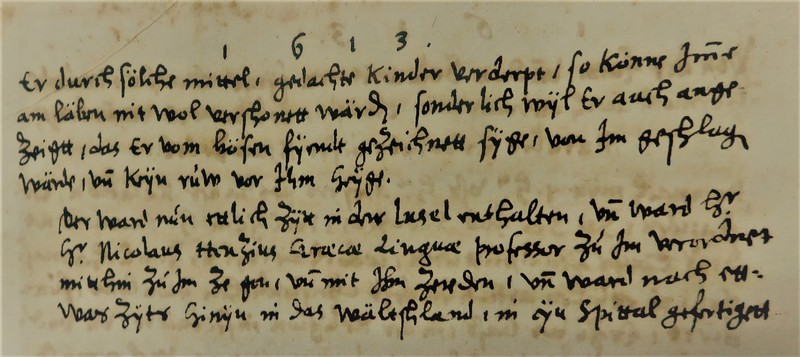 1613.
Er durch sölche mittel, gedachte Kinder verderpt, so könne Im̄e
am läben nit wol verschonett wärdē, sonderlich wyl Er auch ange-
Zeigtt, das Er vom bösen fyendt gezeichnett syge, von Im geschlagē
wärde, vn̄ keyn růw vor Ihm heyge.
Der ward nůn ettlich Zytt in der Insel enthalten, vn̄ ward Hr.
Hr. Nicolaus Græcæ Linguæ Professor zů Im verordnet
mitthin zů Im ze gon, vn̄ mit Ihm zereden, vn̄ ward nach ett-
was Zyts hinyn in das wältschland, in eyn Spittal gefertigett